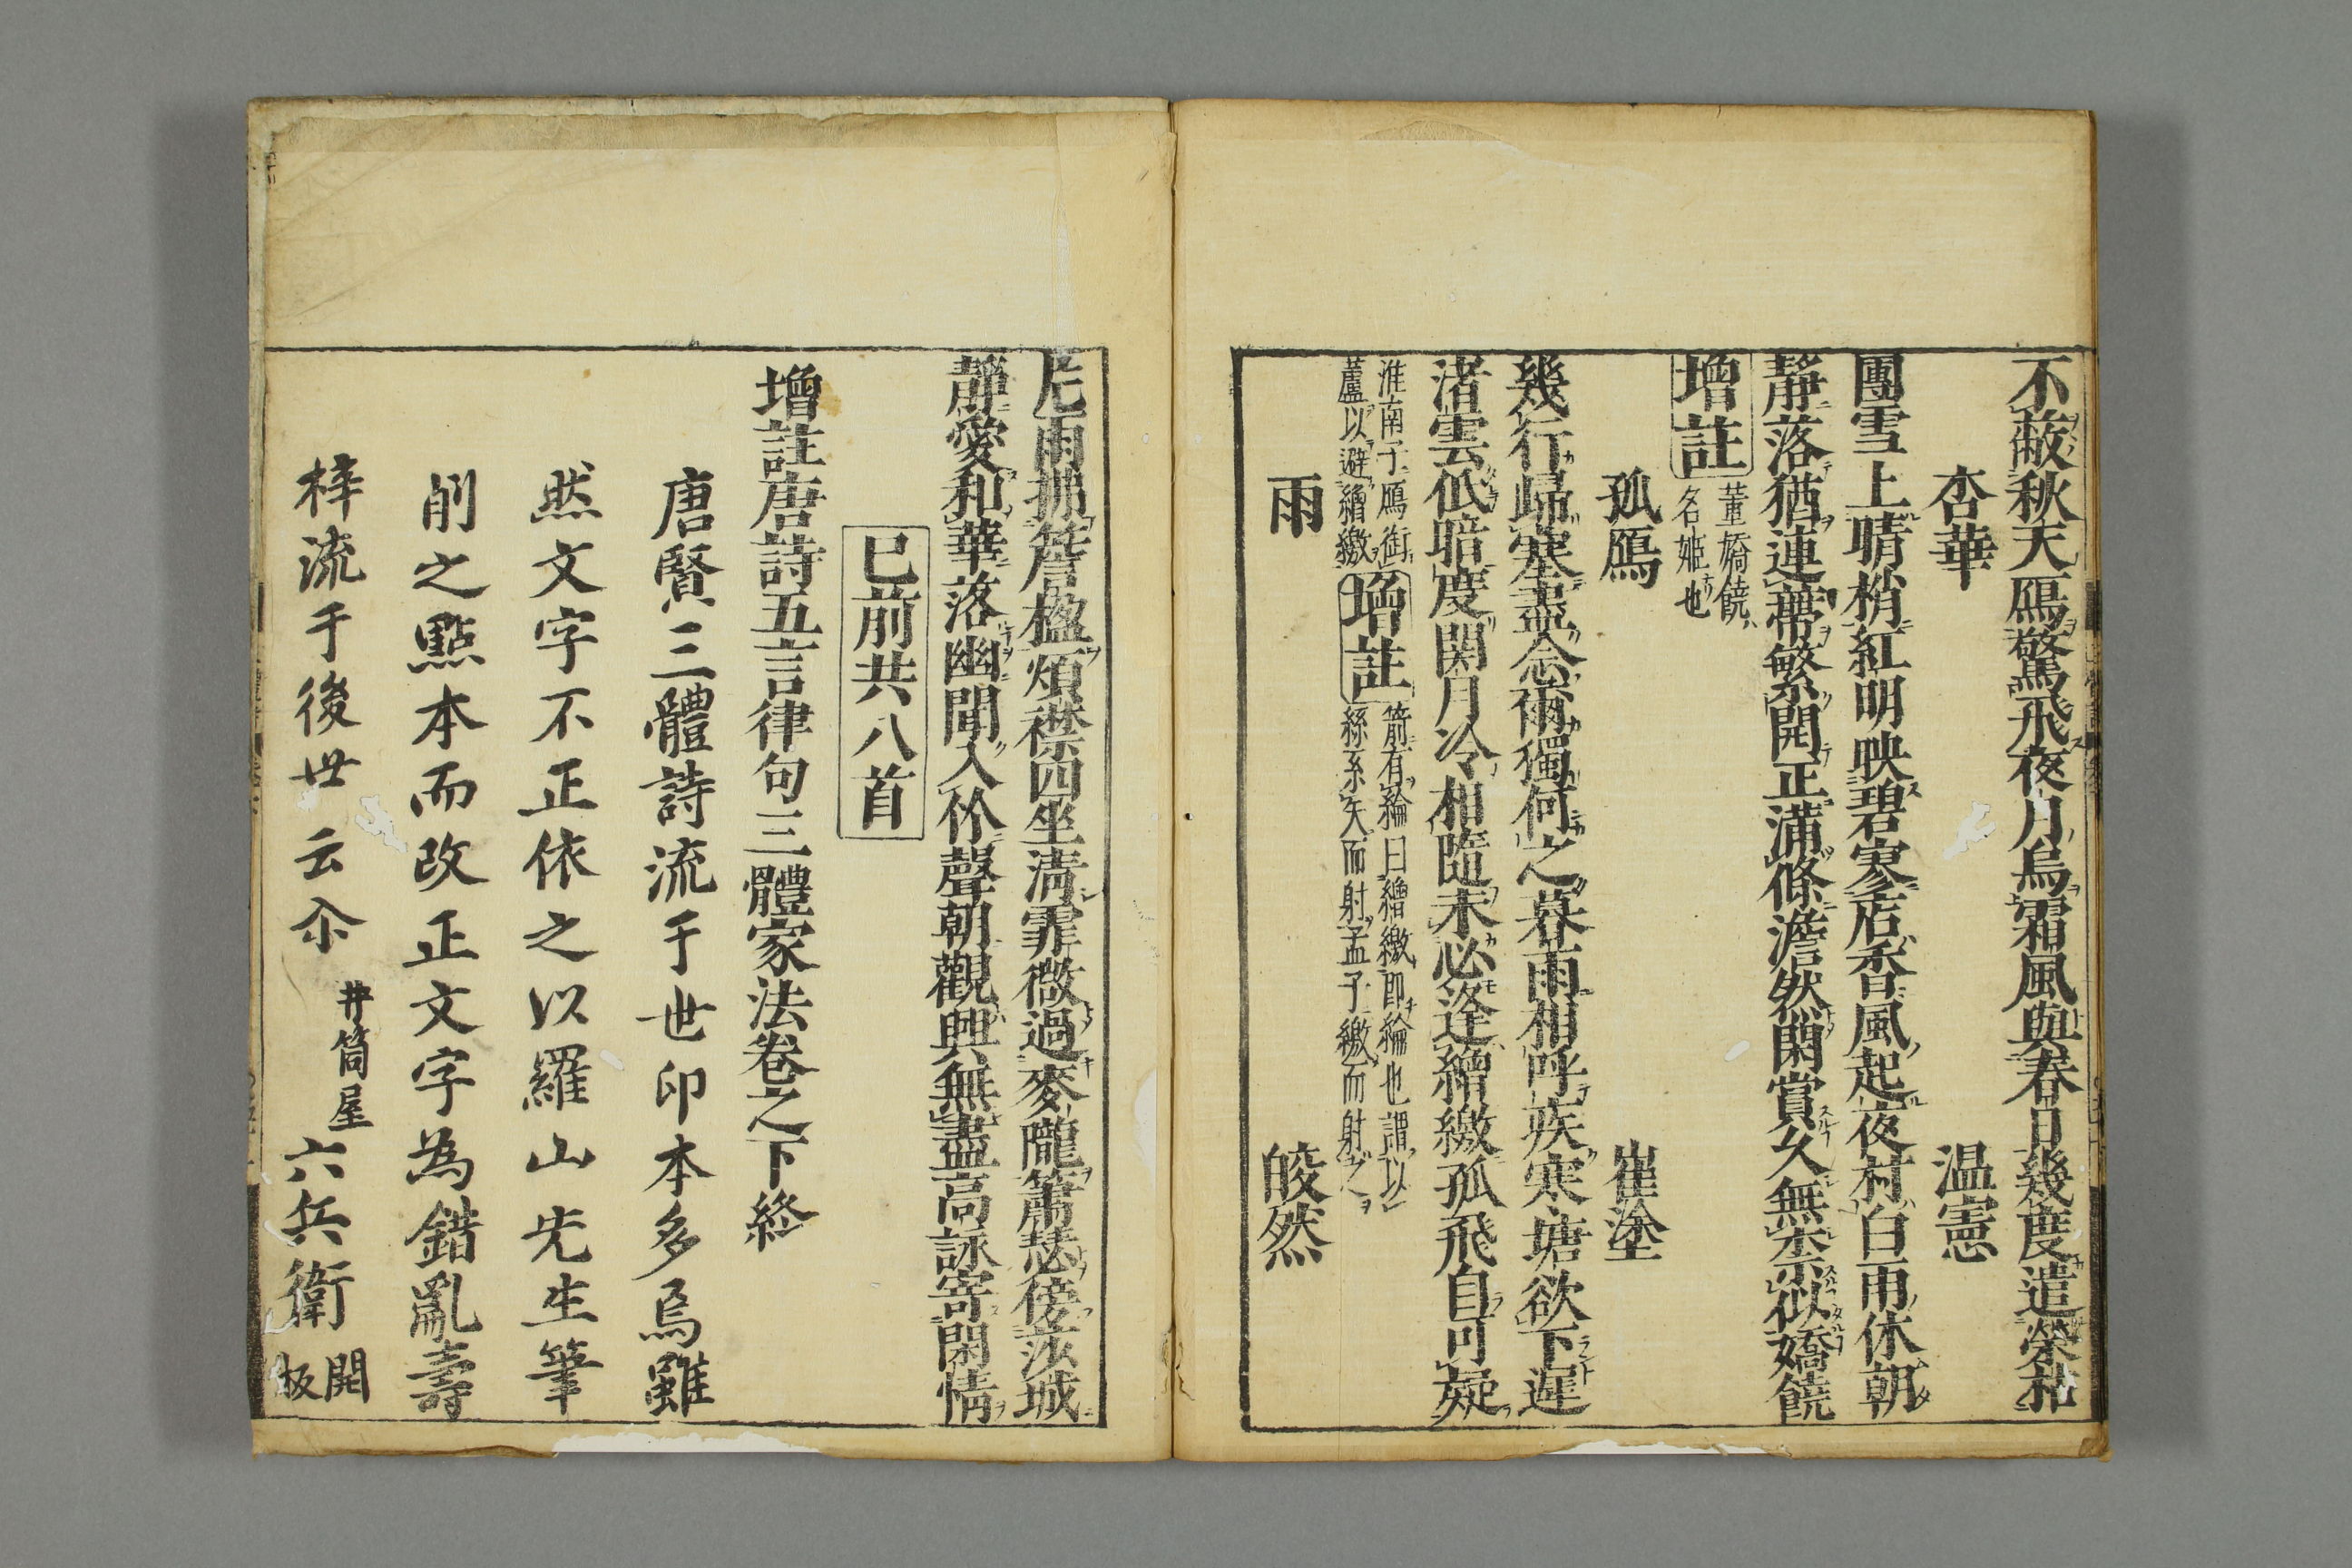 不蔽秋天鴈驚飛夜月烏霜風與春日幾度遣榮枯
杏華　温憲
團雪上晴梢紅明映碧寥店香風起夜村白雨休朝
靜落猶連蔕繁開正滿條澹然閑賞久無柰似嬌饒
增註
董嬌饒
名姫也
孤鴈　崔塗
幾行歸塞盡念爾獨何之暮雨相呼疾寒塘欲下遲
渚雲低暗度関月冷相隨未必逢繒繳孤飛自可疑
淮南子鴈銜
蘆以避繒繳
增註
箭有綸曰繒繳即綸也謂以
絲系矢而射孟子繳而射之
雨　皎然
片雨拂簷楹煩襟四坐清霏微過麥隴蕭瑟傍莎城
靜愛和華落幽聞入竹聲朝觀興無盡高詠寄閑情
已前共八首
增註唐詩五言律句三體家法卷之下終
唐賢三體詩流于世印本多焉雖
然文字不正依之以羅山先生筆
削之點本而改正文字為錯亂壽
梓流于後世云尒
井筒屋
六兵衛
開
板